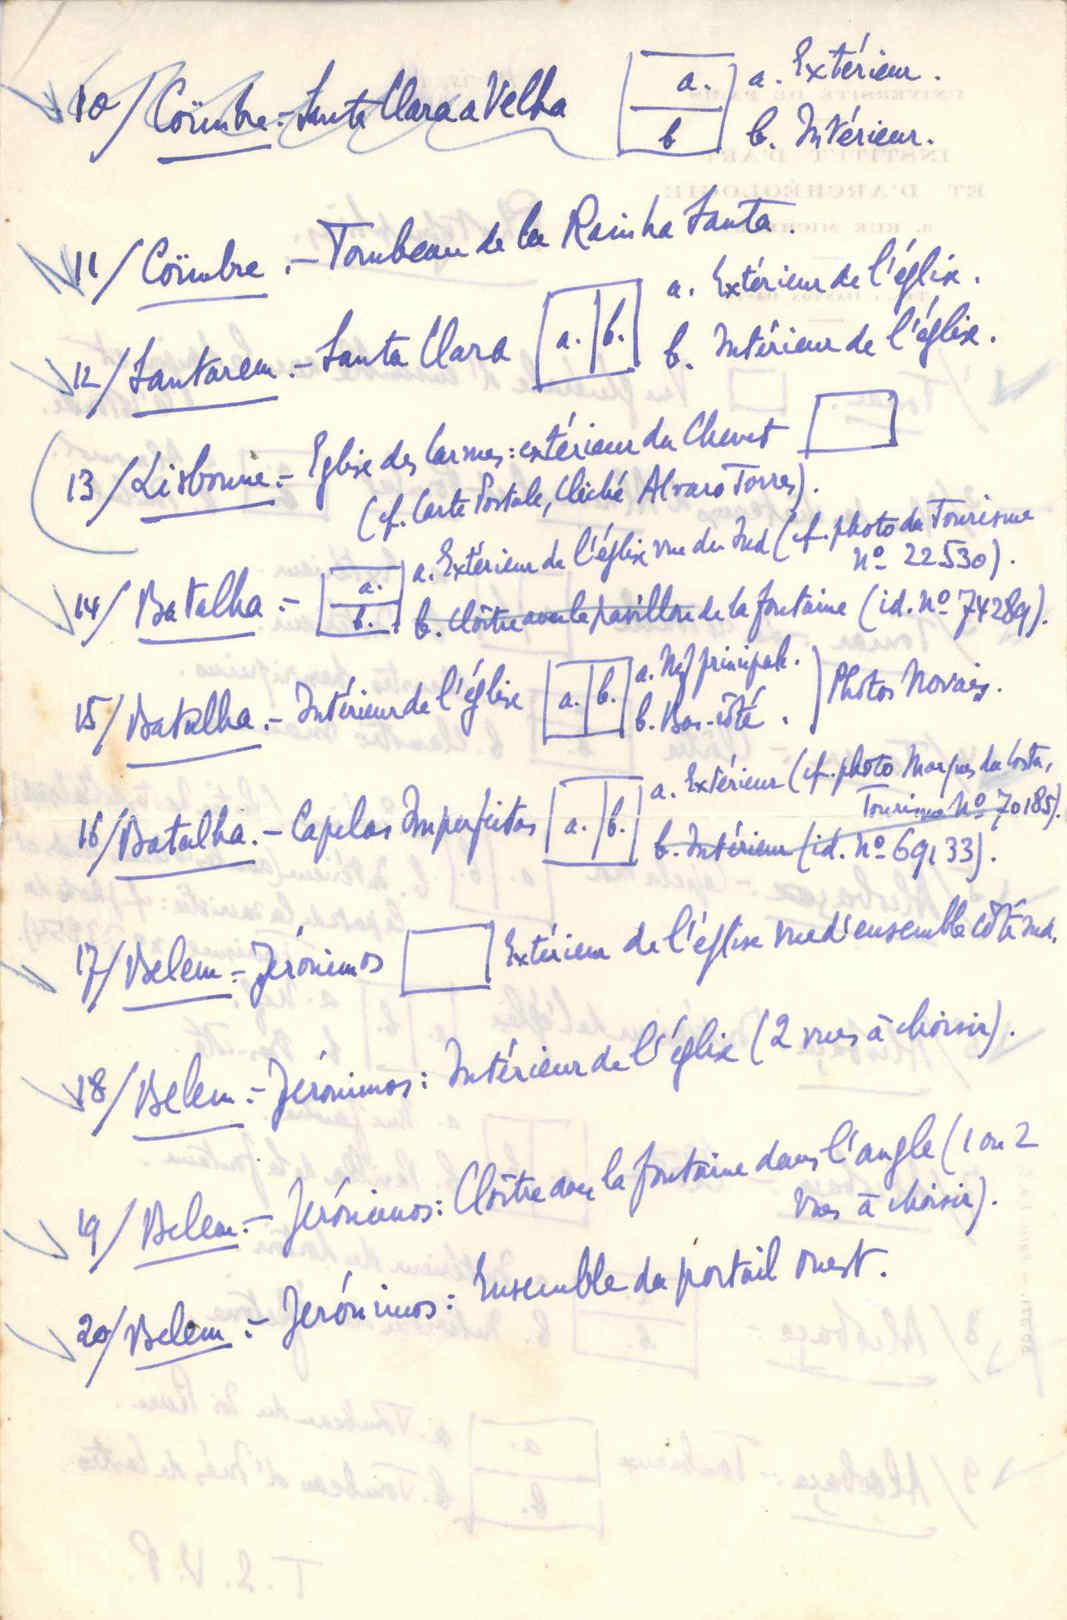 10/ Coïmbre.- Santa Clara a Velha
a.
b
a. Extérieur.
b. Intérieur.
11/ Coïmbre.- Tombeau de la Rainha Santa.
12/ Santarem.- Santa Clara
a. b.
a. Extérieur de l'église.
b. Intérieur de l'église.
13/ Lisbonne.- Eglise des Carmes: extérieur du Chevet
(cf. Carte Postale, Cliché Alvaro Torres).
14/ Batalha.-
a.
b.
a. Extérieur de l'église vue du Sud (cf. photo du Tourisme
nº 22530).
b. Cloître avec le pavillon de la fontaine (id. nº 74289).
15/ Batalha.- Intérieur de l'église
a. b.
a. Nef principale.
b. Bas-côté.
Photos Novais.
16/ Batalha.- Capelas Imperfeitas
a. b.
a. Extérieur (cf. photo Marques da Costa,
Tourismo Nº 70185).
b. Intérieur (id. nº 69133).
17/ Belem.- Jerónimos
Extérieur de l'église vue d'ensemble côté sud.
18/ Belem.- Jerónimos: Intérieur de l'église (2 vues à choisir).
19/ Belem.- Jerónimos: Cloître avec la fontaine dans l'angle (1 ou 2
vues à choisir).
20/ Belem.- Jerónimos: Ensemble du portail ouest.